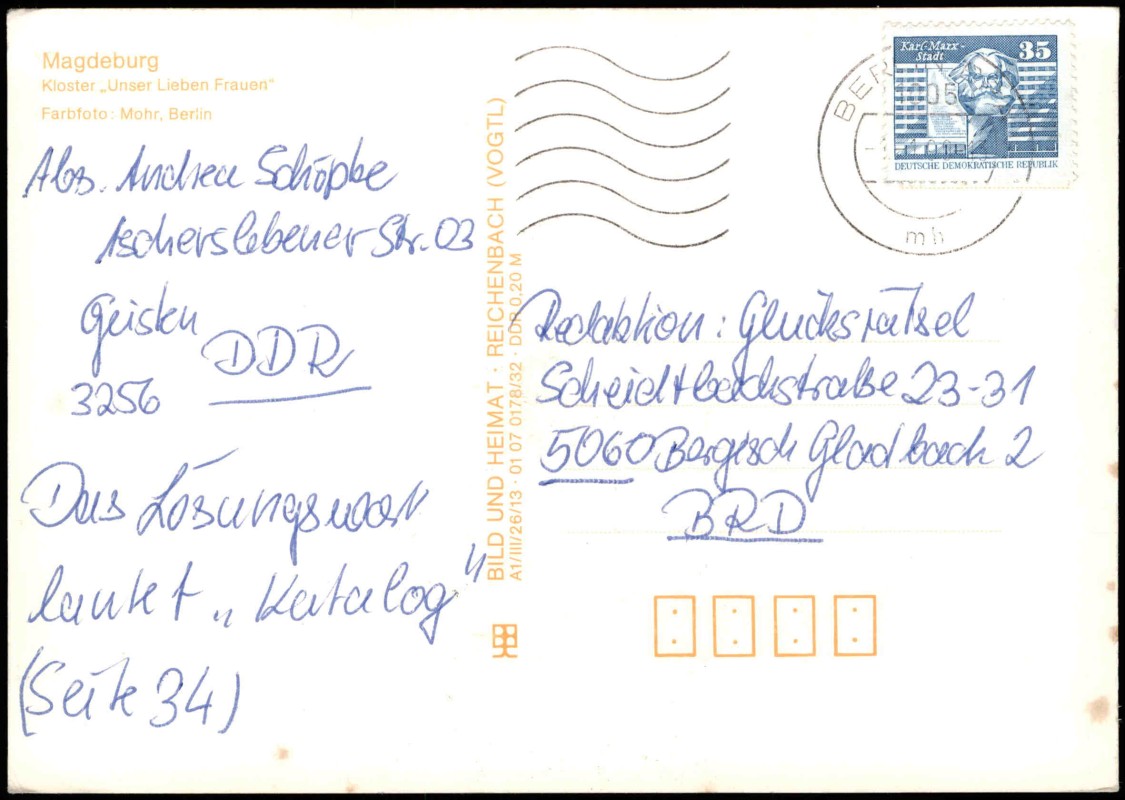 Magdeburg
Kloster „Unser Lieben Frauen"
Farbfoto: Mohr, Berlin
Abs. Andrea Schöpke
Ascherslebener Str. 03
Geisten
DDR
3256
Das Lösungswort
lautet „Katalog"
(Seite 34)
BILD UND HEIMAT · REICHENBACH (VOGTL)
A1/III/26/13 · 01 07 0178/32 · DDR 0,20 M
Karl-Marx-
Stadt
35
DEUTSCHE DEMOKRATISCHE REPUBLIK
mh
Redaktion: Glücksrätsel
Scheidtbachstraße 23-31
5060 Bergisch Gladbach 2
BRD